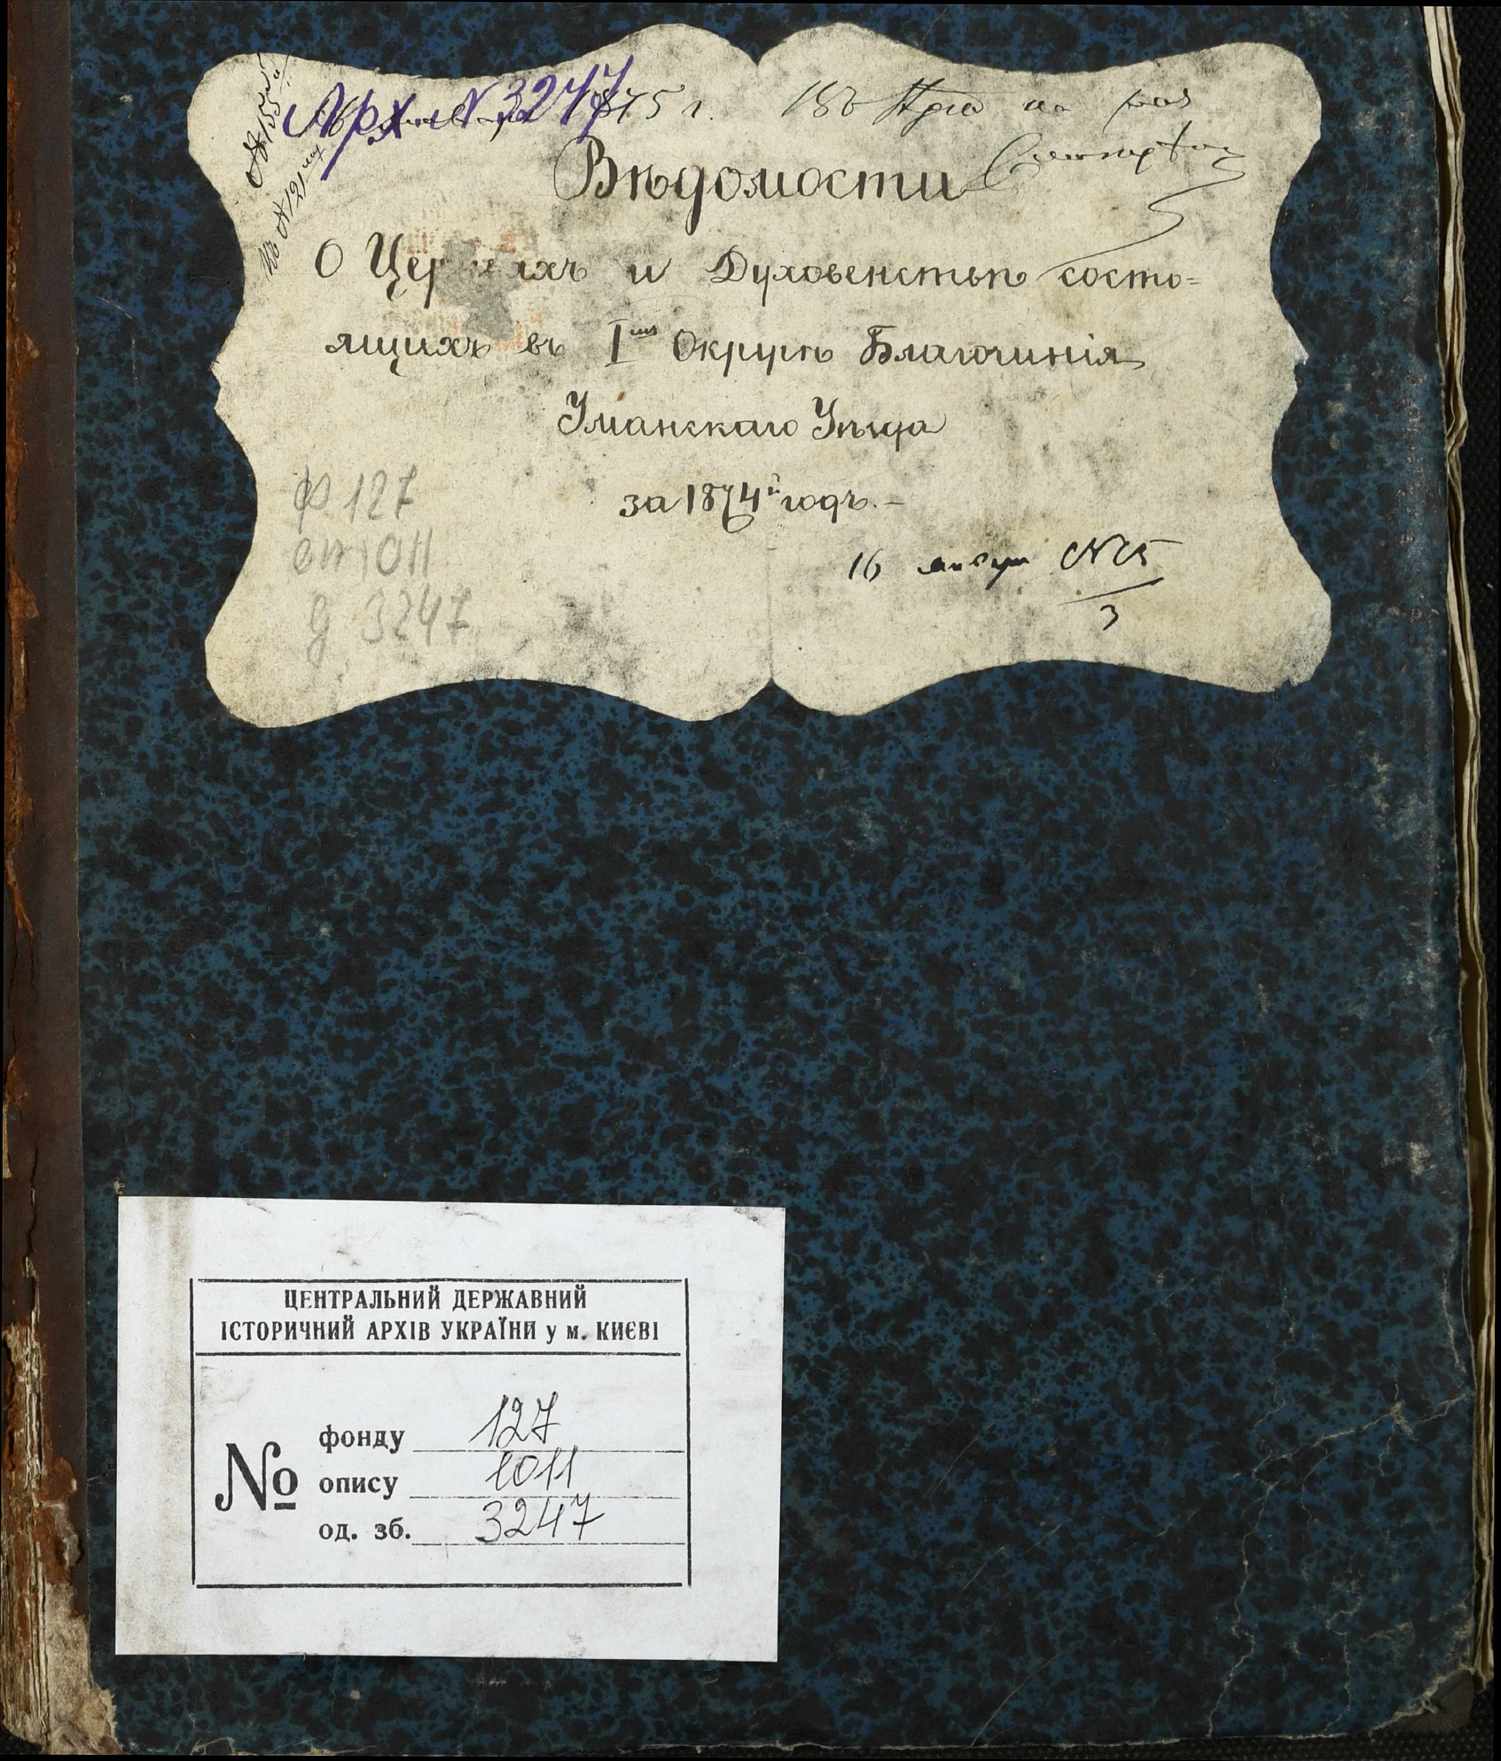 Арх. № 3247
1875 г.
Вѣдомости
О Церквахъ и Духовенствѣ состо=
ящихъ въ I мъ Округѣ Благочинія
Уманскаго Уѣзда
за 1874й годъ.–
16 января № 5
3
Ф 127
оп 1011
д 3247
ЦЕНТРАЛЬНИЙ ДЕРЖАВНИЙ
ІСТОРИЧНИЙ АРХІВ УКРАЇНИ у м. КИЄВІ
№
фонду 127
опису 1011
од. зб. 3247